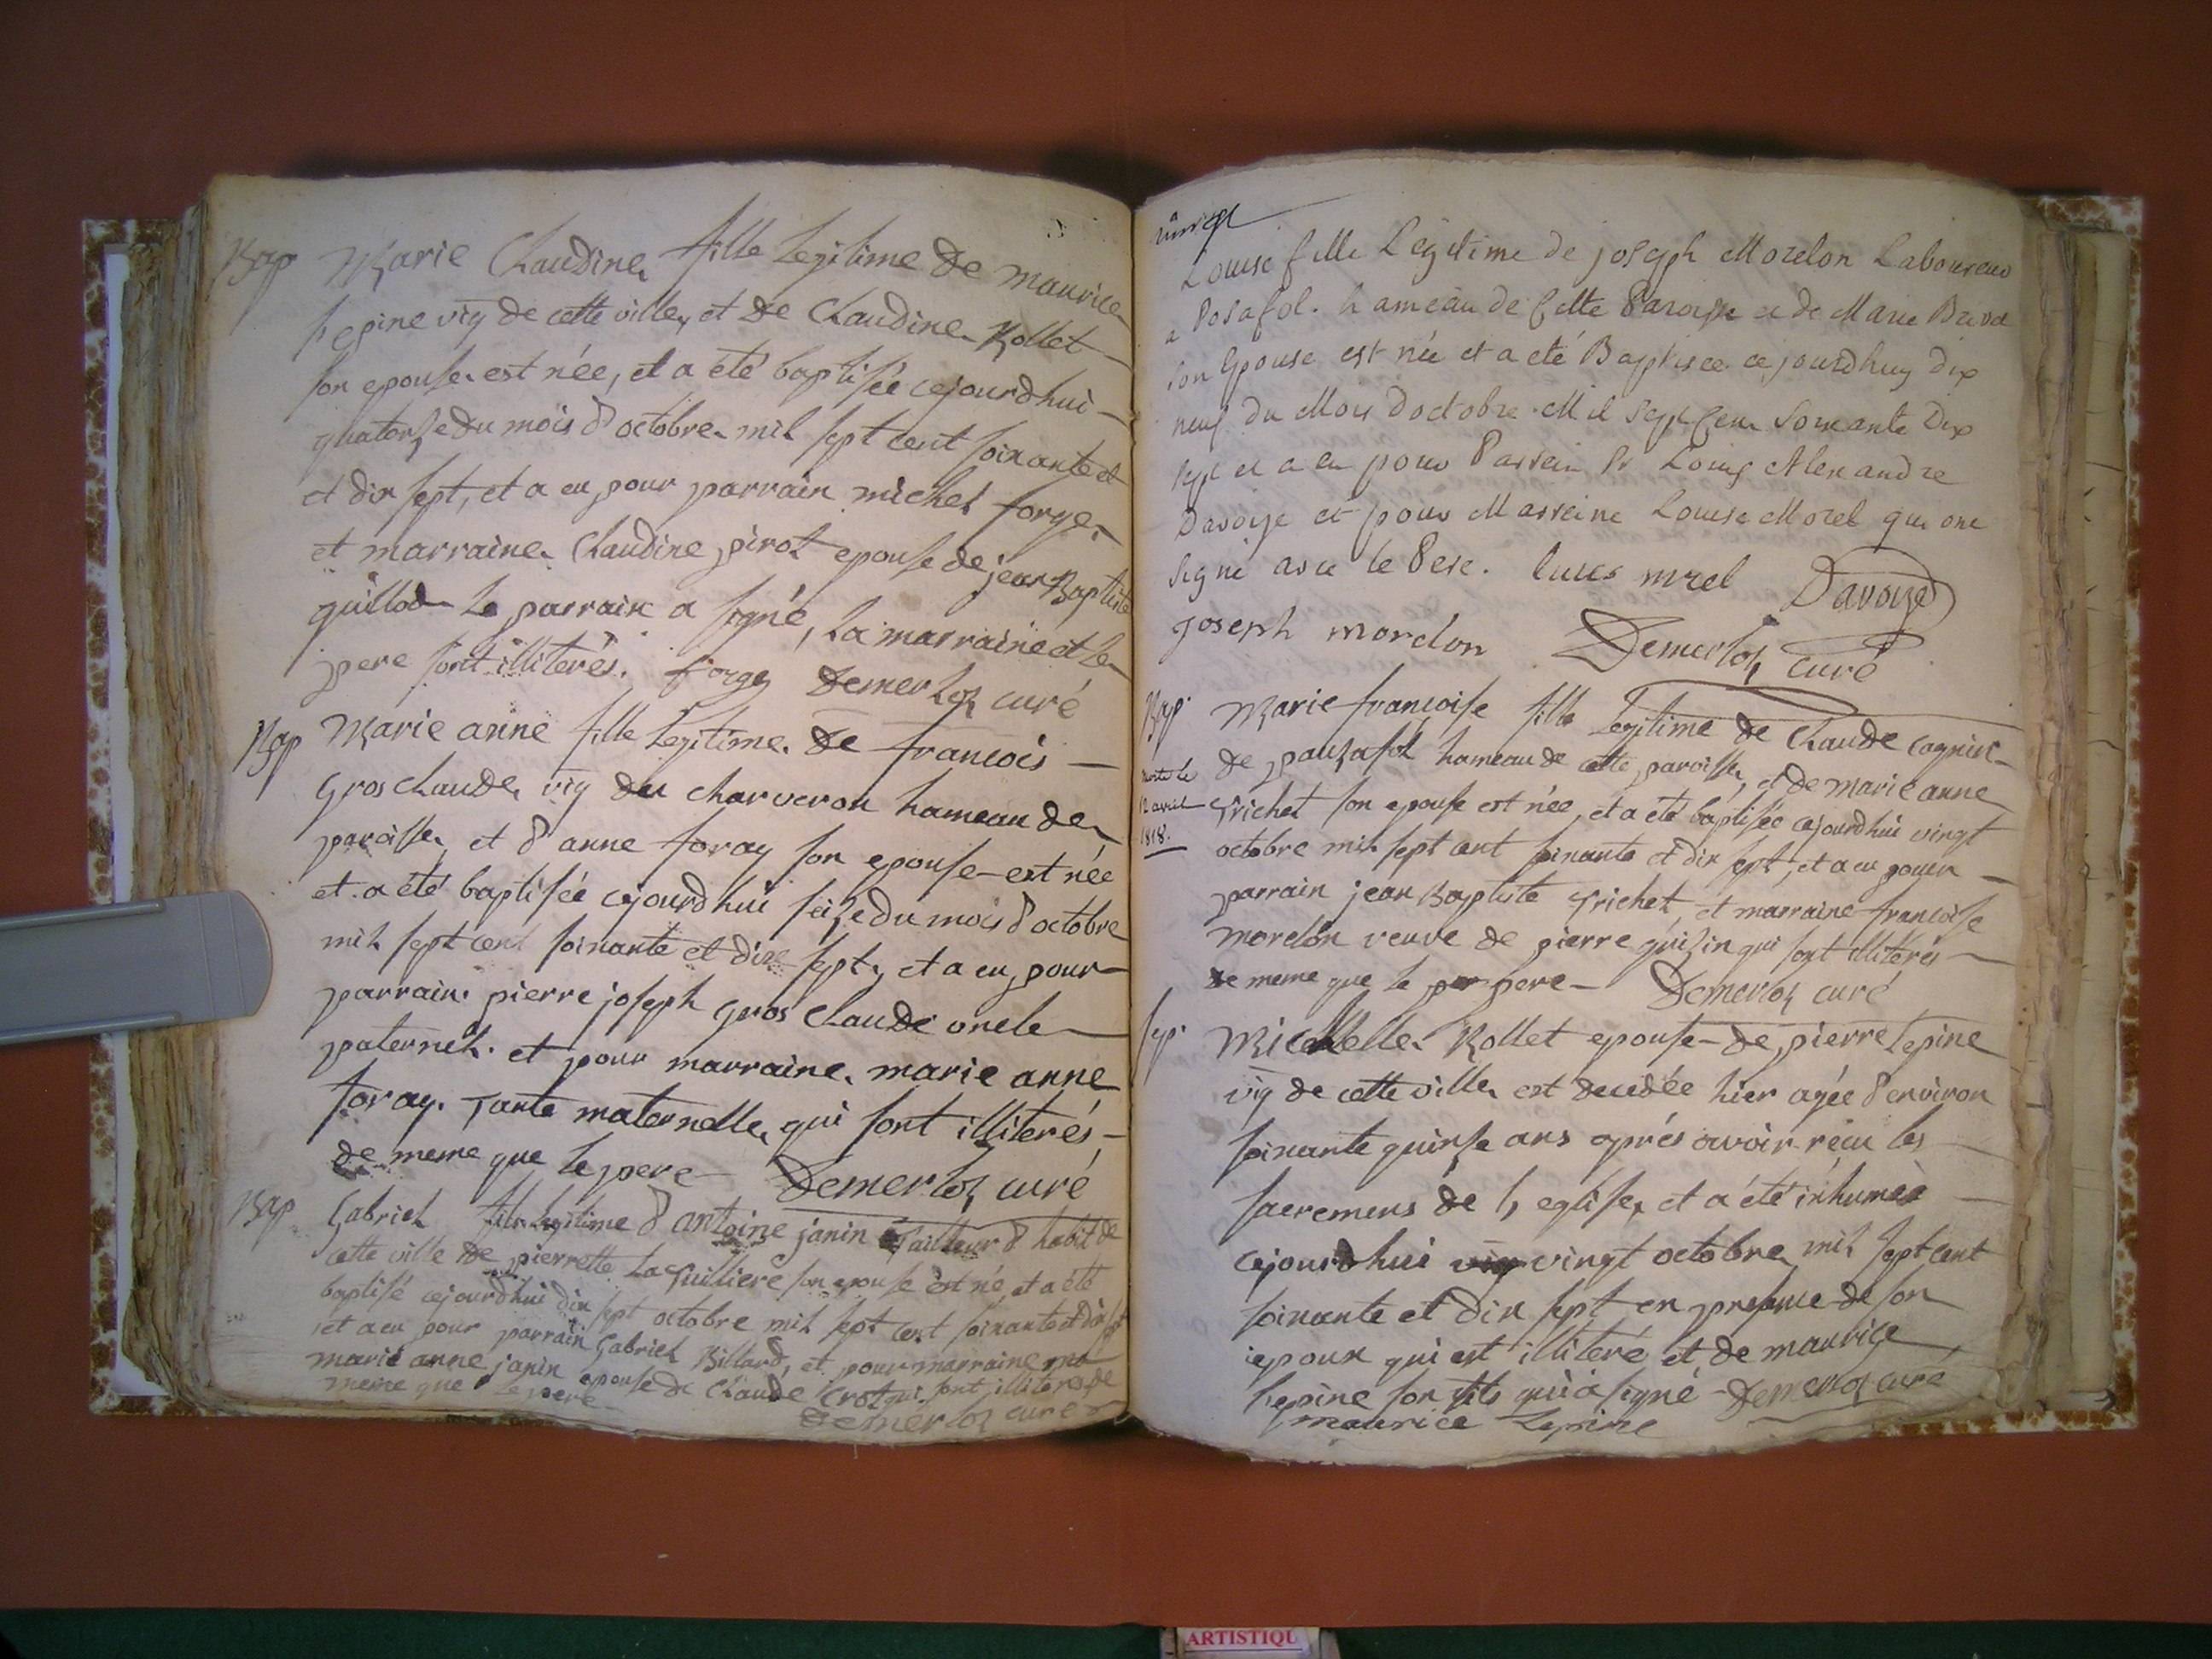 Bap Marie Claudine fille legitime de maurice
lepine vig de cette ville, et de Claudine Rollet
son epouse est née, et a été baptisée cejourdhui
quatorse du mois d'octobre mil sept cent soixante et
et dix sept, et a eu pour parrain michel forge
et marraine Claudine pirot epouse de jean Baptiste
guillod le parrain a signé, la marraine et le
pere sont illiterés. forge Demerloz curé
Bap Marie anne fille legitime de francois
Gros claude vig du charveron hameau de
paroisse, et d'anne foray son epouse est née
et a été baptisée cejourdhui seize du mois d'octobre
mil sept cent soixante et dix sept, et a eu pour
parrain pierre joseph gros claude oncle
paternel. et pour marraine marie anne
foray. tante maternelle, qui sont illiterés
de meme que le pere Demerloz curé
Bap Gabriel fils legitime d'antoine janin tailleur d'habit de
cette ville de pierrette la Cuilliere son epouse est né, et a été
baptisé cejourdhui dix sept octobre mil sept cent soixante et dix sept
et a eu pour parrain Gabriel Billard, et pour marraine
marie anne janin epouse de Claude Crot qui sont illiterés de
meme que le pere Demerloz curé
Louise fille Legitime de joseph Morelon Laboureur
a Posafol. hameau de Cette Paroisse et de Marie
son Epouse est née et a eté Baptisee cejourdhuy dix
neuf du Mois doctobre Mil Sept Cent Soixante Dix
sept et a eu pour Parrein Sr Louis Alexandre
Davoise et pour Marreine Louise Morel qui ont
signé avec le Pere. luies mrel Davoize
joseph morelon Demerloz curé
Bap. Marie françoise fille legitime de Claude Cognin
de pouzafol hameau de cette paroisse, et de marie anne
morte le
12 avril
1818.
trichet son epouse est née, et a été baptisée cejourdhui vingt
octobre mil sept cent soixante et dix sept, et a eu pour
parrain jean Baptiste trichet, et marraine francoise
morelon veuve de pierre guizin qui sont illiterés
de meme que le pere Demerloz curé
sep. Michelle Rollet epouse de pierre lepine
vig de cette ville est decedée hier agée d'environ
soixante quinse ans aprés avoir récu les
sacremens de l'eglise, et a été inhumée
cejourdhui vingt octobre mil sept cent
soixante et dix sept en presence de son
epoux qui est illiteré et de maurice
lepine son fils qui a signé Demerloz curé
maurice Lepine
ARTISTIQU